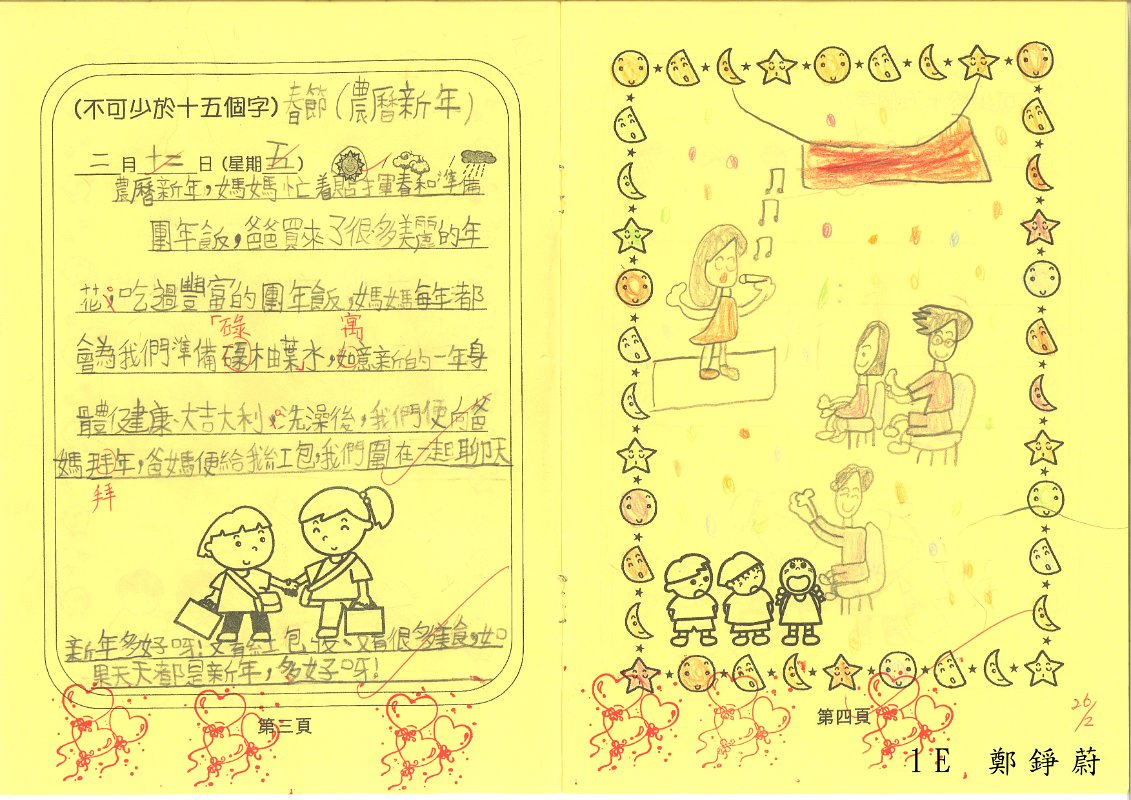 (不可少於十五個字) 春節(農曆新年)
二月十二日(星期五)
農曆新年，媽媽忙着貼揮春和準備
團年飯，爸爸買來了很多美麗的年
花，吃過豐富的團年飯，媽媽每年都
「碌 寓
會為我們準備碌柚葉水，如意新的一年身
體健康、大吉大利。洗澡後，我們便向爸
媽拜年，爸媽便給我紅包，我們圍在一起聊天
拜
新年多好呀！又有紅包收、又有很多美食，如
果天天都是新年，多好呀！
第三頁
第四頁
26/2
1E 鄭錚蔚